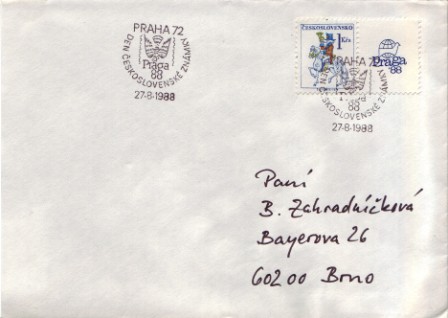 PRAHA 72
DEN ČESKOSLOVENSKÉ ZNÁMKY
Praga
88
27-8-1988
ČESKOSLOVENSKO
1 Kčs
Praga
88
PRAHA 72
ČESKOSLOVENSKÉ ZNÁMKY
88
27-8-1988
Paní
B. Zahradníčková
Bayerova 26
60200 Brno